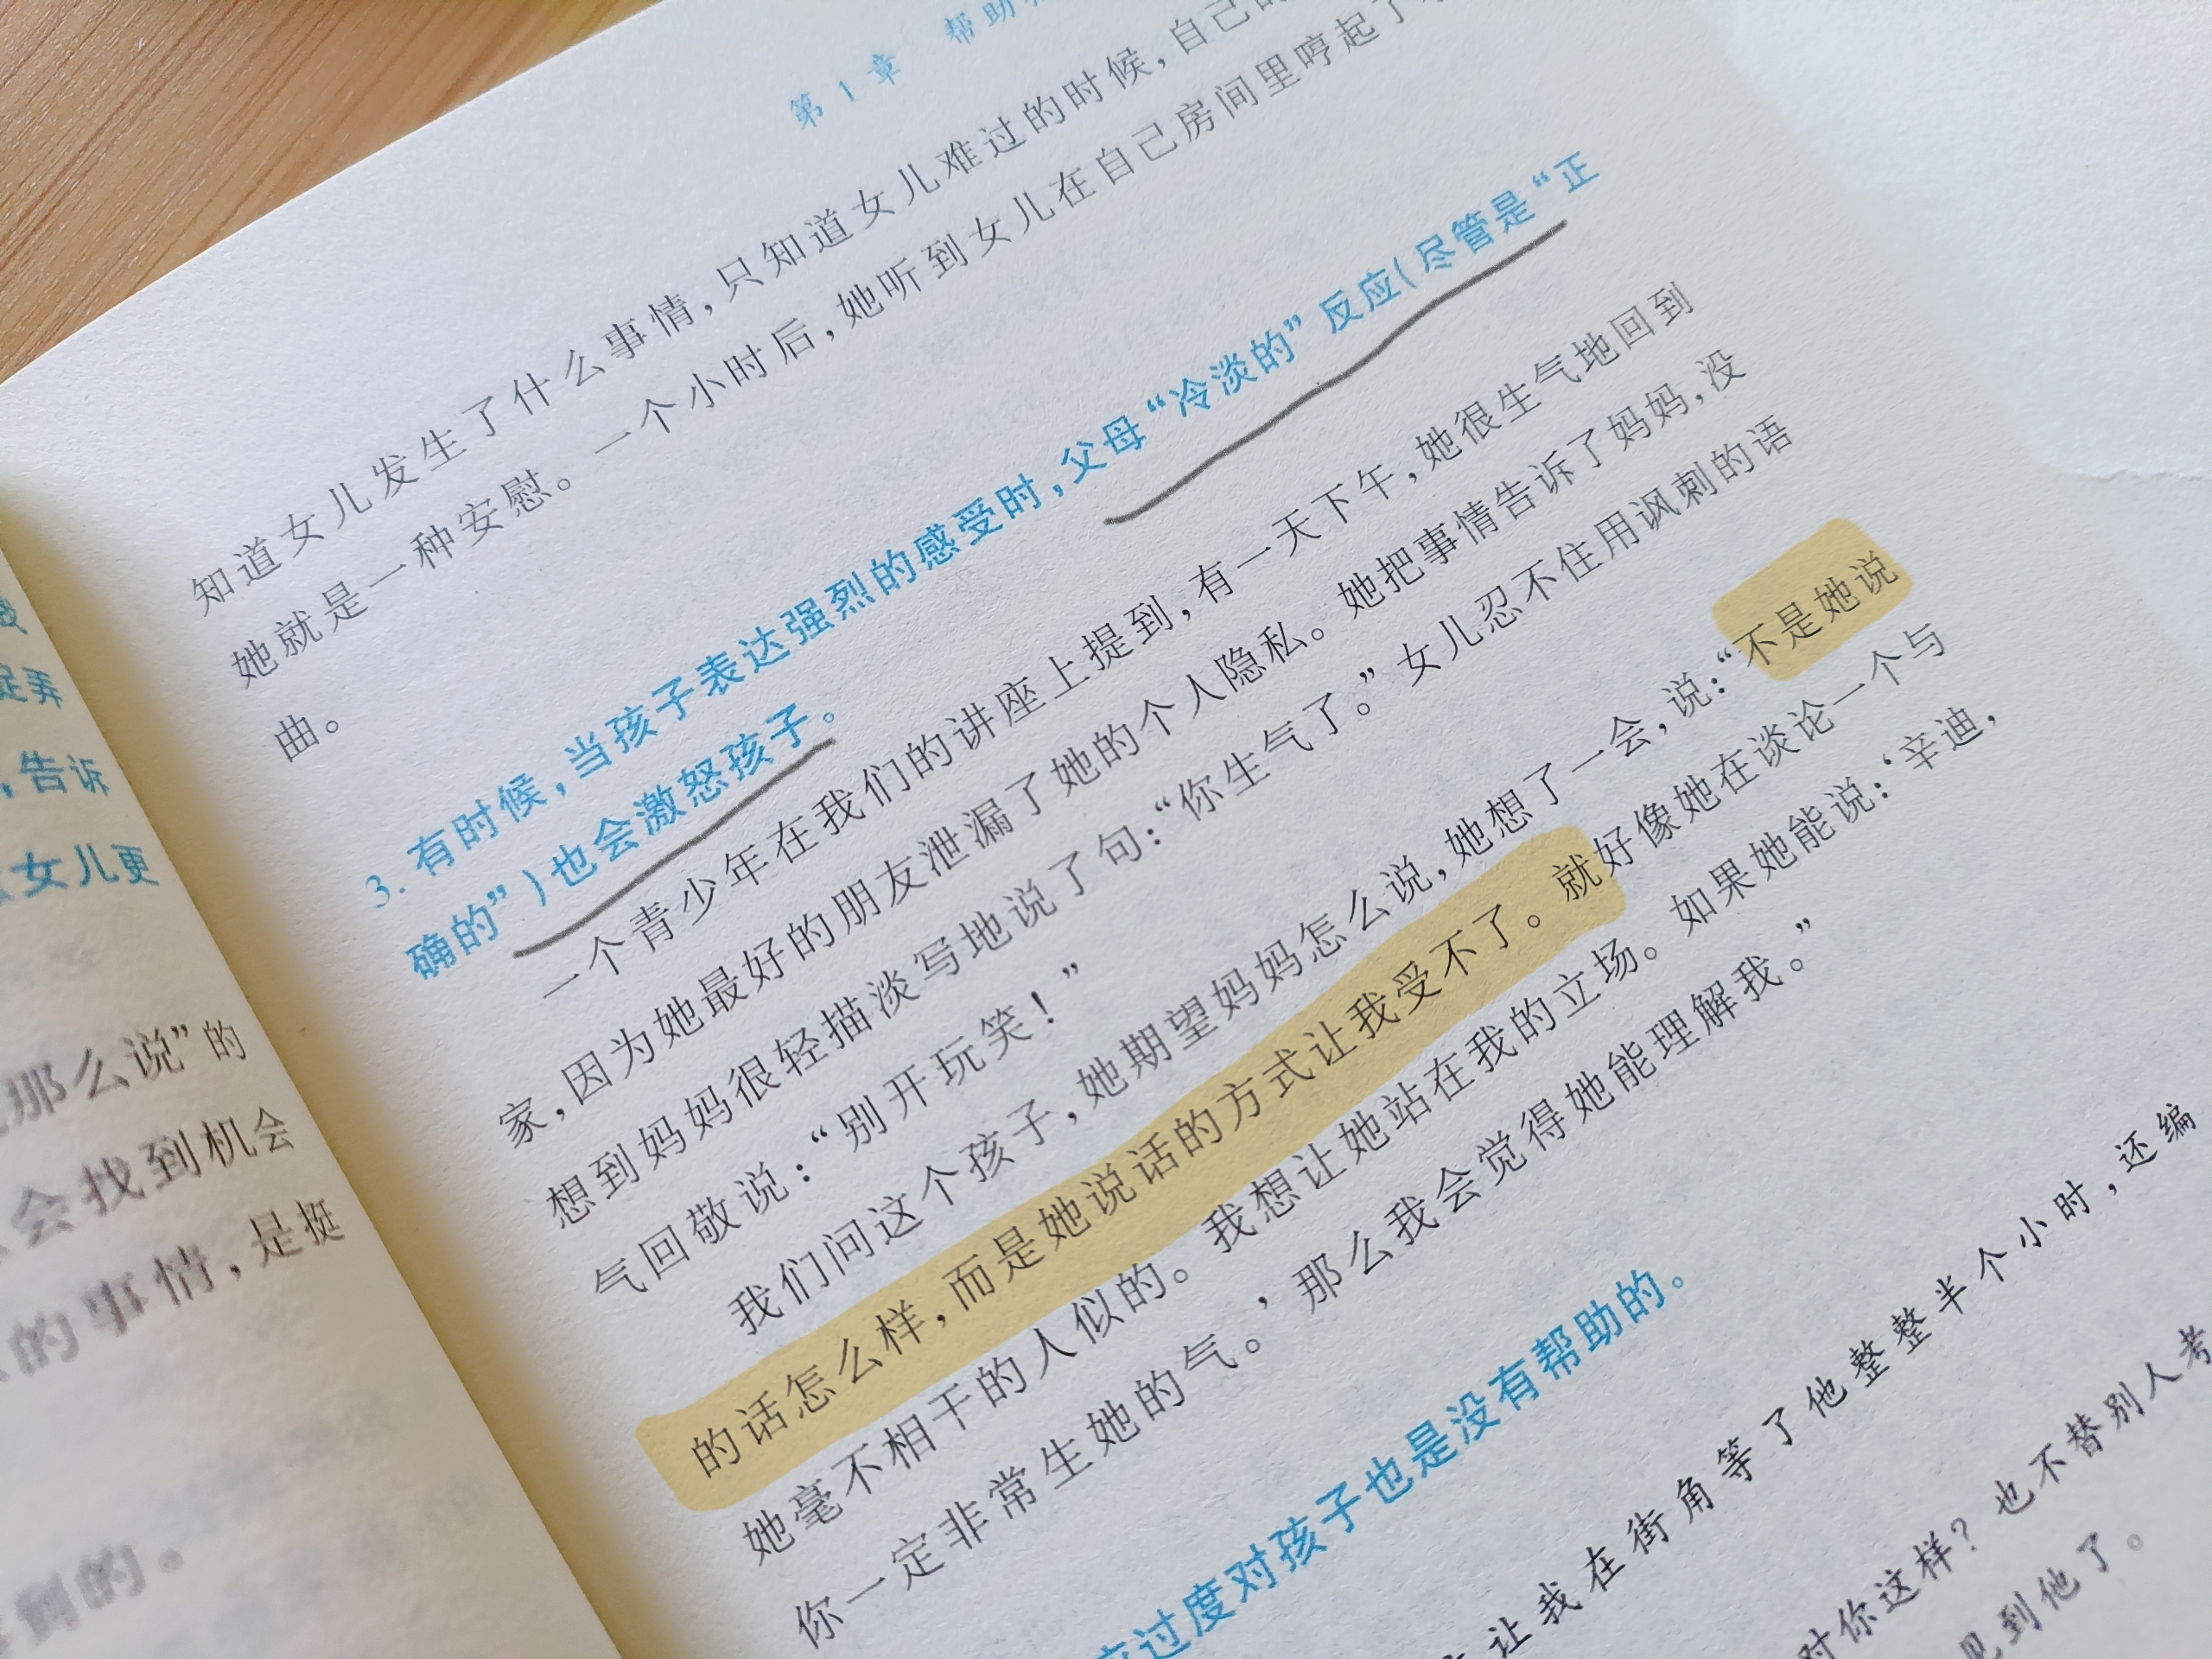 第 1 章 帮助
知道女儿发生了什么事情，只知道女儿难过的时候，自己
她就是一种安慰。一个小时后，她听到女儿在自己房间里哼起了
曲。
3. 有时候，当孩子表达强烈的感受时，父母“冷淡的”反应(尽管是“正
确的”)也会激怒孩子。
一个青少年在我们的讲座上提到，有一天下午，她很生气地回到
家，因为她最好的朋友泄漏了她的个人隐私。她把事情告诉了妈妈，没
想到妈妈很轻描淡写地说了句：“你生气了。”女儿忍不住用讽刺的语
气回敬说：“别开玩笑！”
我们问这个孩子，她期望妈妈怎么说，她想了一会，说：“不是她说
的话怎么样，而是她说话的方式让我受不了。就好像她在谈论一个与
她毫不相干的人似的。我想让她站在我的立场。如果她能说：‘辛迪，
你一定非常生她的气。’，那么我会觉得她能理解我。”
过度对孩子也是没有帮助的。
让我在街角等了他整整半个小时，还编
对你这样？也不替别人考
见到他了。
足弄
，告诉
女儿更
那么说”的
会找到机会
的事情，是挺
到的。